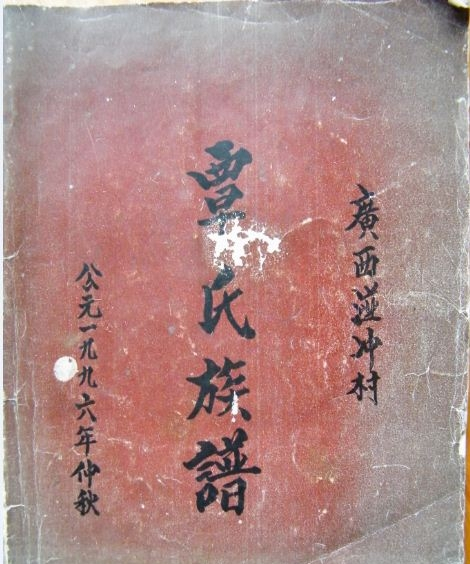 廣西湴冲村
覃氏族譜
公元一九九六年仲秋